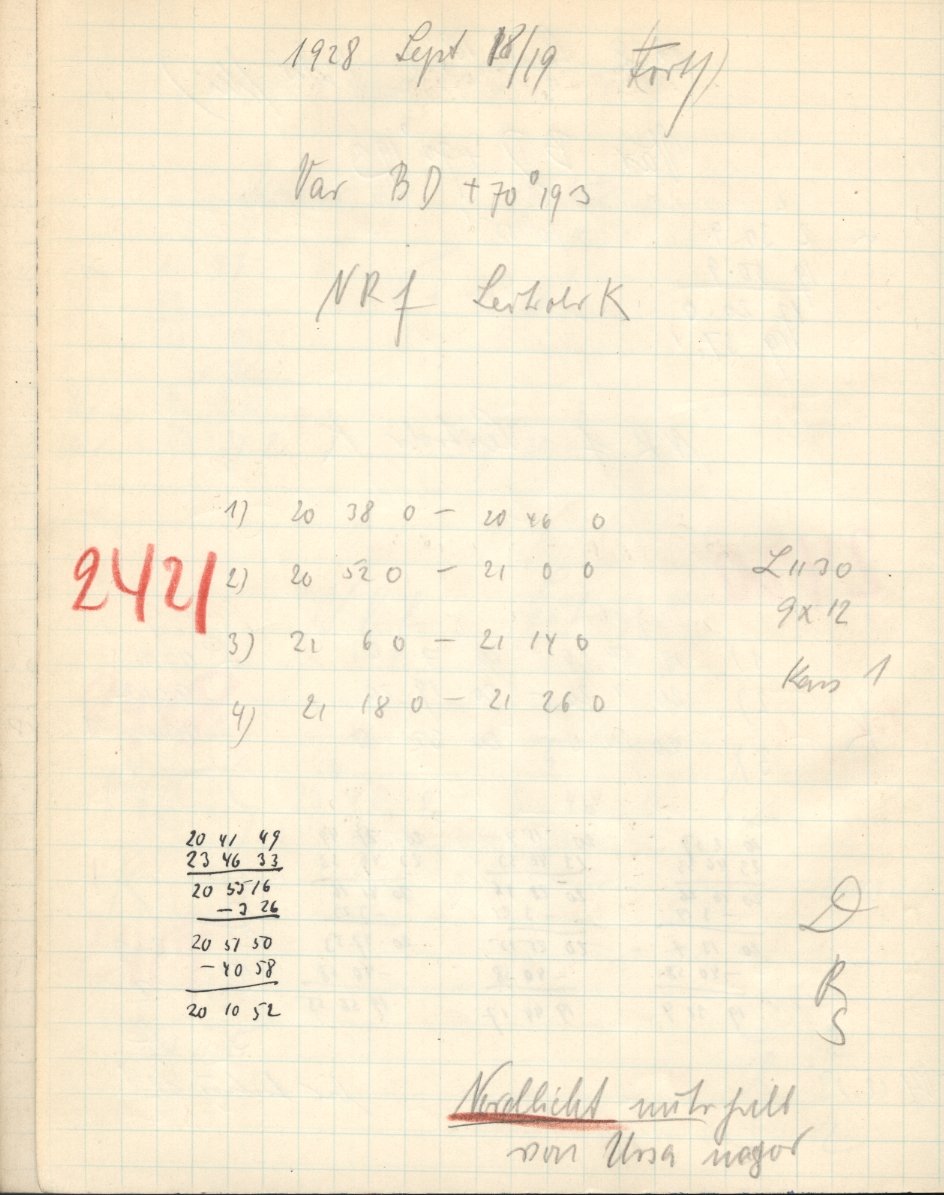 1928 Sept 18/19 (Forts)
Var BD +70° 193
NRf Leitrohr K
1) 20 38 0 – 20 46 0
2421
2) 20 52 0 – 21 0 0
L 1130
9x12
3) 21 6 0 – 21 14 0
Kass 1
4) 21 18 0 – 21 26 0
20 41 49
23 46 33
20 55 16
– 3 26
20 51 50
– 40 58
20 10 52
D
R
S
Nordlicht
von Ursa major